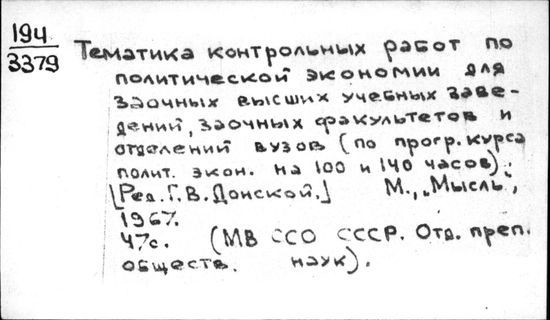 194
3379
Тематика контрольных работ по
политической экономии для
заочных высших учебных заве-
дений, заочных факультетов и
отделений вузов (по прогр. курса
полит. экон. на 100 и 140 часов).
[Ред. Г.В. Донской.] М., "Мысль",
1967.
47с. (МВ ССО СССР. Отд. преп.
обществ. наук).